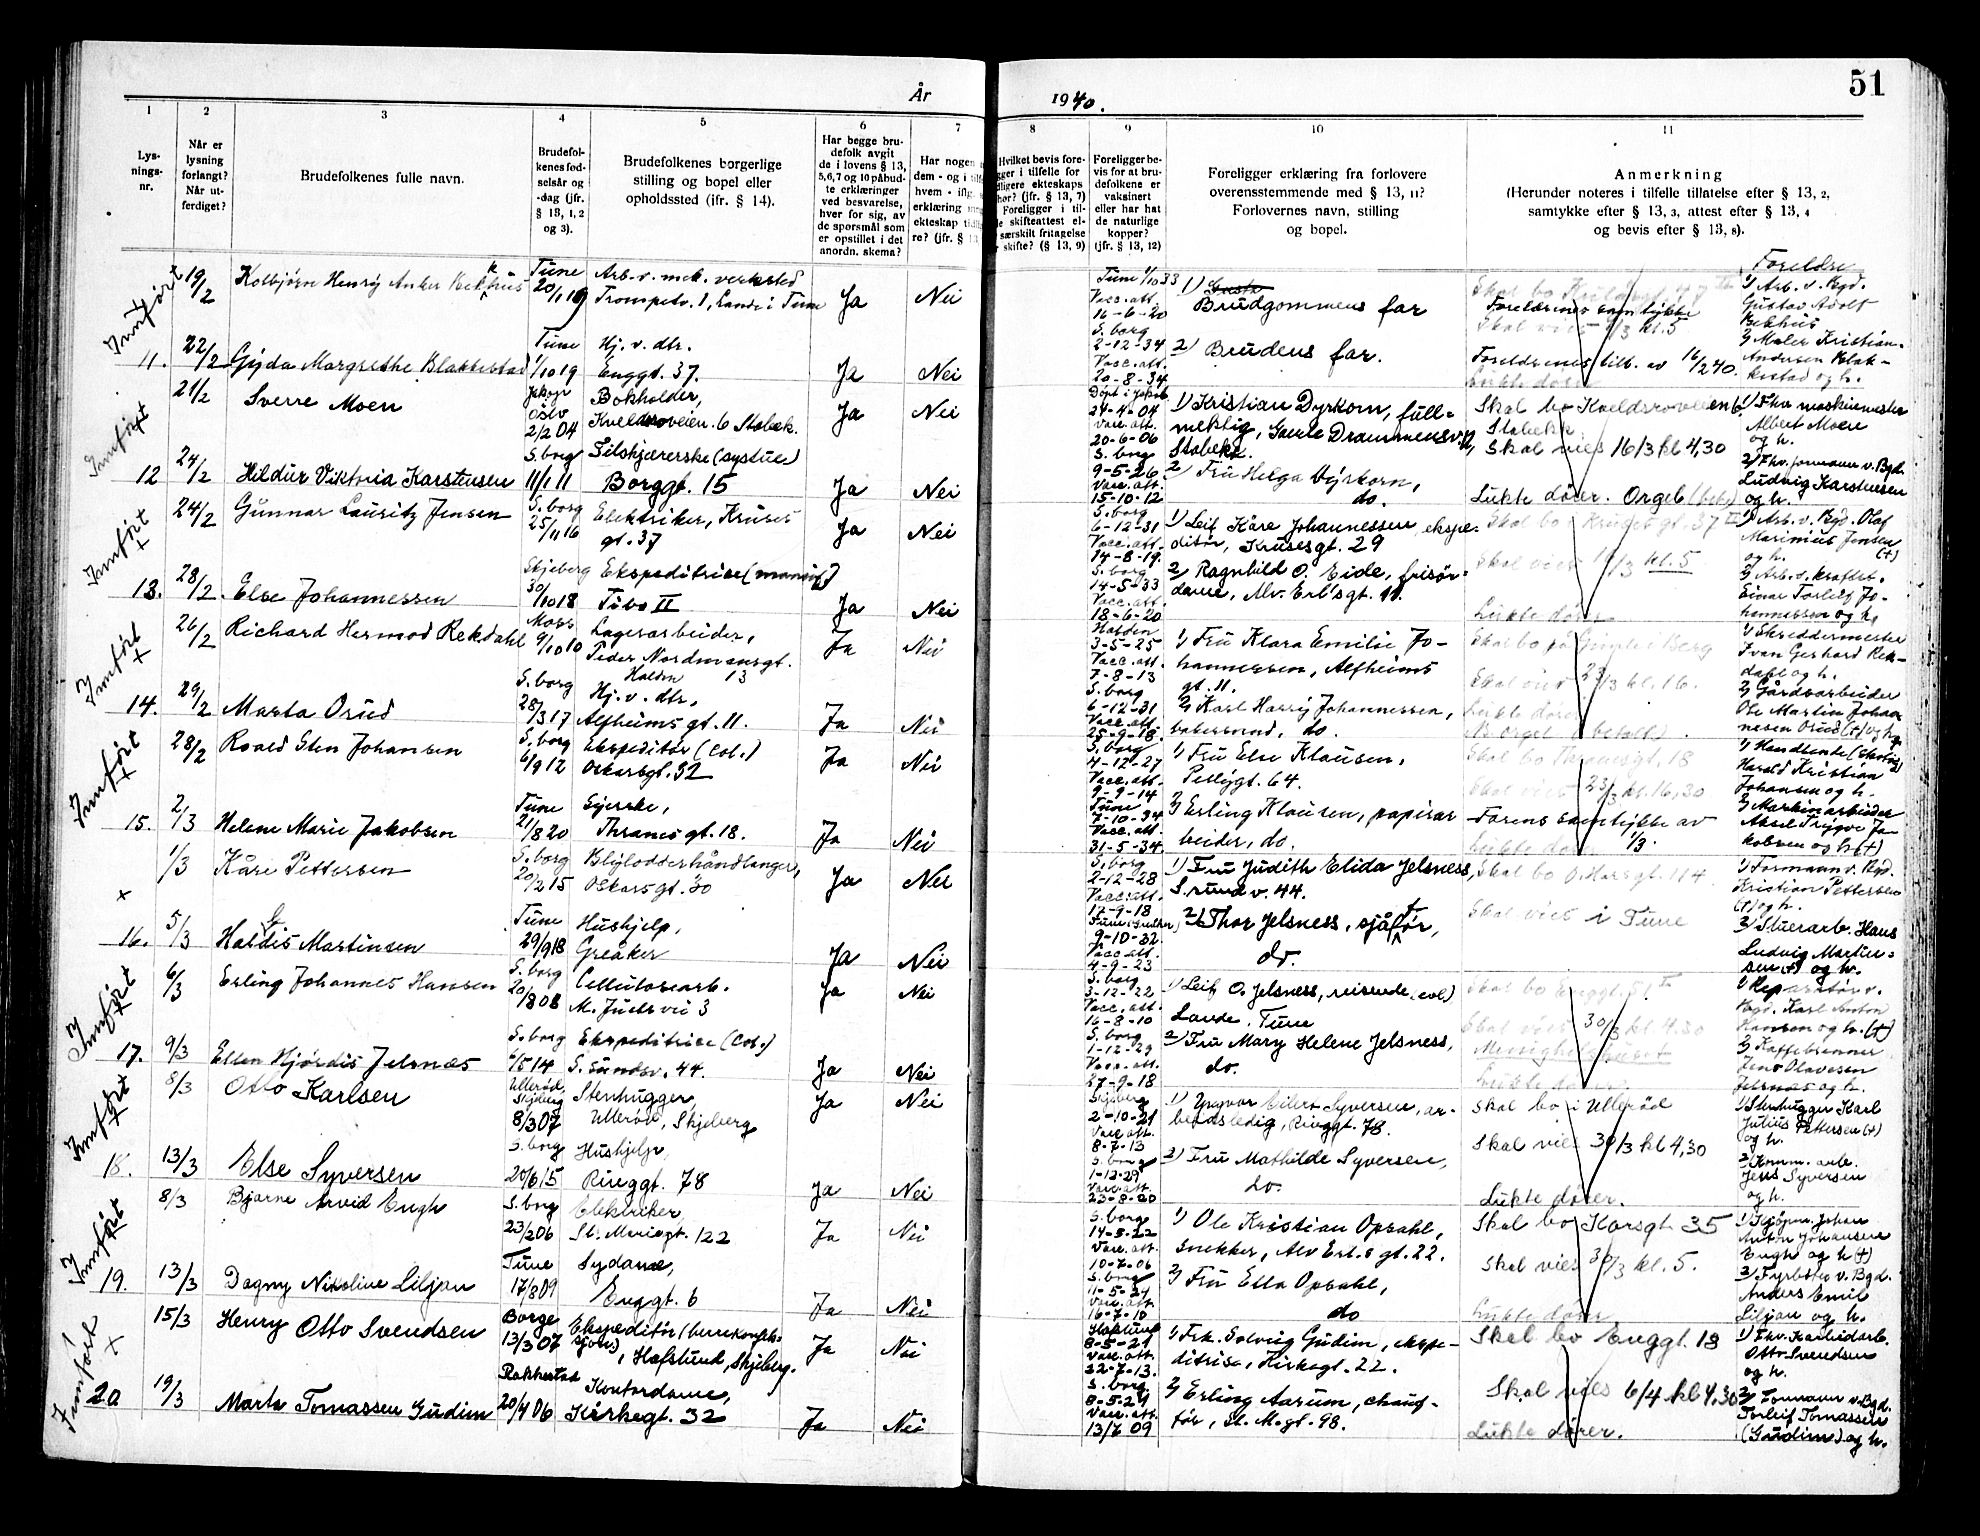 51
År
1940.
1
2
3
4
5
6
7
8
9
10
11
Lys-
nings-
nr.
Når er
lysning
forlangt?
Når ut-
ferdiget?
Brudefolkenes fulle navn.
Brudefol-
kenes fød-
selsår og
-dag (jfr.
§ 13, 1, 2
og 3).
Brudefolkenes borgerlige
stilling og bopel eller
opholdssted (ifr. § 14).
Har begge bru-
defolk avgit
de i lovens § 13,
5,6,7 og 10 påbud-
te erklæringer
ved besvarelse,
hver for sig, av
de spørsmål som
er opstillet i det
anordn. skema?
Har nogen
dem - og i
hvem - iflg.
erklæring
ekteskap
re? (jfr. §
Hvilket bevis fore-
ligger i tilfelle for
tidligere ekteskaps
ophør? (jfr. § 13, 7)
Foreligger i til-
skifteattest el-
særskilt fritagelse
skifte? (§ 13, 9)
Foreligger be-
vis for at bru-
defolkene er
vaksinert
eller har hat
de naturlige
kopper?
(jfr. § 13, 12)
Foreligger erklæring fra forlovere
overensstemmende med § 13, 11?
Forlovernes navn, stilling
og bopel.
Anmerkning
(Herunder noteres i tilfelle tillatelse efter § 13, 2,
samtykke efter § 13, 3, attest efter § 13, 4
og bevis efter § 13, 8).
Innført
19/2
Kolbjørn Henry Anker Bekkhus
Tune
20/1 19
Arb. v. mek. verksted
Trompetv. 1, Lande i Tune
Ja
Nei
Tune 1/10 33
Vacc. att.
16-6-20
1) Brudgommens far
Foreldrenes samtykke
Skal vies 2/3 kl. 5
Foreldre
1) Arb. v. Bgd.
Gustav Adolf
Bekhus
11.
22/2
Gyda Margrethe Blakkestad
Tune
1/10 19
Hj. v. dtr.
Enggt. 37.
Ja
Nei
S. borg
2-12-34
Vacc. att.
20-8-34
2) Brudens far.
Foreldrenes till. av 16/2 40.
Lukte dører
2) Maler Kristian
Andersen Blak-
kestad og h.
Innført
21/2
Sverre Moen
Oslo
2/2 04
Bokholder,
Kveldsroveien 6 Stabekk.
Ja
Nei
24-4-04
Vacc. att.
20-6-06
1) Kristian Dyrkorn, full-
mektig, Gamle Drammensv.
Stabekk.
Skal bo Kveldsroveien 6
Stabekk.
Skal vies 16/3 kl 4,30
1) Fhv. maskinmester
Albert Moen
og h.
12
24/2
Hildur Viktoria Karstensen
S. borg
11/1 11
Tilskjærerske (systue)
Borggt. 15
Ja
Nei
S. borg
9-5-26
Vacc. att.
15-10-12
2) Fru Helga Dyrkorn,
do.
Lukte dører. Orgel (bet.)
2) Fhv. formann v. Bgd.
Ludvig Karstensen
og h.
Innført
24/2
Gunnar Lauritz Jensen
S. borg
25/11 16
Elektriker, Kruses
gt. 37
Ja
Nei
S. borg
6-12-31
Vacc. att.
14-8-19.
1) Leif Kåre Johannessen, ekspe-
ditør, Krusesgt. 29
Skal bo Krusesgt. 37 II
kl. 5
1) Arb. v. Bgd. Olaf
Marinius Jensen
og h. (+)
13.
28/2
Else Johannessen
Skjeberg
30/10 18
Ekspeditrise
Tibo II
Ja
Nei
S. borg
14-5-33
Vacc. att.
18-6-20
2) Ragnhild O. Eide, frisør-
dame, Alv. Erl'sgt. 11.
Lukte dører
2) Arb. v. kraftst.
Einar Torleif Jo-
hannessen og h.
Innført
26/2
Richard Hermod Rekdahl
Moss
9/10 10
Lagerarbeider,
Peder Nordmansgt.
Halden 13
Ja
Nei
Halden
3-5-25
Vacc. att.
7-8-13
1) Fru Klara Emilie Jo-
hannessen, Alfheims
gt. 11.
Skal vies 23/3 kl. 16.
1) Skreddermester
Ivan Gerhard Rek-
dahl og h.
14.
29/2
Marta Orud
S. borg
28/3 17
Hj. v. dtr.
Alfheimsgt. 11.
Ja
Nei
S. borg
6-12-31
Vacc. att.
25-9-18
2) Karl Harry Johannessen,
bakersvend, do.
Lukte dører
2) Gårdsarbeider
Ole Martin Johan
nesen Orud (+) og h.
Innført
28/2
Roald Sten Johansen
S. borg
6/9 12
Ekspeditør (Col.)
Oskarsgt. 32
Ja
Nei
S. borg
4-12-27
Vacc. att.
9-9-14
1) Fru Else Klausen,
Pellygt. 64.
Skal bo Thranesgt. 18
Skal vies 23/3 kl. 16,30
1) Handlende
Harald Kristian
Johansen og h.
15.
2/3
Helene Marie Jakobsen
Tune
21/8 20
Syerske,
Thranesgt. 18.
Ja
Nei
Tune
7-10-34
Vacc. att.
31-5-34.
2) Erling Klausen, papirar
beider, do.
Farens samtykke av
1/3.
Lukte dører
2) Maskinarbeider
Aksel Trygve Ja-
kobsen og h (+)
1/3
Kåre Pettersen
S. borg
20/2 15
Blylodderhåndlanger,
Oskarsgt. 30
Ja
Nei
S. borg
2-12-28
Vacc. att.
12-9-18
1) Fru Judith Elida Jelsness,
S. sund v. 44.
Skal bo Oskarsgt. 114
Skal vies i Tune
1) Formann v. Bgd.
Kristian Pettersen
(+) og h.
16.
5/3
Haldis Martinsen
Tune
29/9 18
Hushjelp,
Greåker
Ja
Nei
9-10-32
Vacc. att.
4-9-23
2) Thor Jelsness, sjåfør,
do.
2) Stuerarb. Hans
Ludvig Martin-
sen (+) og h.
Innført
6/3
Erling Johannes Hansen
S. borg
20/8 08
Cellulosearb.
M. Juels vei 3
Ja
Nei
S. borg
3-12-22
Vacc. att.
16-8-10
1) Leif O. Jelsness, reisende,
Lande, Tune
Skal bo Enggt. 51 II
Skal vies 30/3 kl. 4.30
Menighetshuset
1) Reparatør v.
Bgd. Karl Anton
Hansen og h. (+)
17.
9/3
Ellen Hjørdis Jelsnæs
S. borg
6/5 14
Ekspeditrise (Col.)
S. sundsv. 44.
Ja
Nei
S. borg
1-12-29
Vacc. att.
27-9-18
2) Fru Mary Helene Jelsness,
do.
Lukte dører.
2) Kaffebrenner
Jens Olavesen
Jelsnæs og h.
Innført
8/3
Otto Karlsen
Ullerød,
Skjeberg
8/3 07
Stenhugger,
Ullerød, Skjeberg
Ja
Nei
Skjeberg
2-10-21
Vacc. att.
8-7-13
1) Yngvar Eilert Syversen, ar-
beidsledig, Ringgt. 78.
Skal bo i Ullerød
Skal vies 30/3 kl 4,30
1) Stenhugger Karl
Julius Pettersen (+)
og h.
18.
13/3
Else Syversen
S. borg
20/6 15
Hushjelp,
Ringgt. 78
Ja
Nei
S. borg
1-12-29
Vacc. att.
23-8-20
2) Fru Mathilde Syversen,
do.
Lukte dører.
2) Komm. arb.
Jens Syversen
og h.
Innført
8/3
Bjarne Arvid Engh
S. borg
23/2 06
Elektriker,
St. Mariegt. 122
Ja
Nei
S. borg
14-5-22
Vacc. att.
10-7-06
1) Ole Kristian Opsahl,
snekker, Alv Erl.s gt. 22.
Skal bo Korsgt. 35
Skal vies 30/3 kl. 5.
Anton Johansen
Engh og h (+)
19.
13/3
Dagny Nikoline Liljan
Tune
17/8 09
Sydame,
Enggt. 6
Ja
Nei
S. borg
11-5-24
Vacc. att.
16-7-10
2) Fru Ella Opsahl,
do
Lukte dører
2) Fyrbøter v. Bgd.
Anders Emil
Liljan og h.
Innført
15/3
Henry Otto Svendsen
Borge
13/3 07
Ekspeditør
, Hafslund, Skjeberg.
Ja
Nei
Hafslund
8-5-21
Vacc. att.
22-7-13.
1) Frk. Solveig Gudim, ekspe-
ditrise, Kirkegt. 22.
Skal bo Enggt. 13
Skal vies 6/4 kl 4.30
1) Fhv. Karbidarb.
Otto Svendsen
og h.
20
19/3
Marta Tomassen Gudim
Rakkestad
20/4 06
Kontordame,
Kirkegt. 32
Ja
Nei
S. borg
8-5-21
Vacc. att.
13/7 09
2) Erling Aarum, chauf-
før, St. M. gt. 98.
Lukte dører.
2) Formann v. Bgd.
Torleif Tomassen
(Gudim) og h.